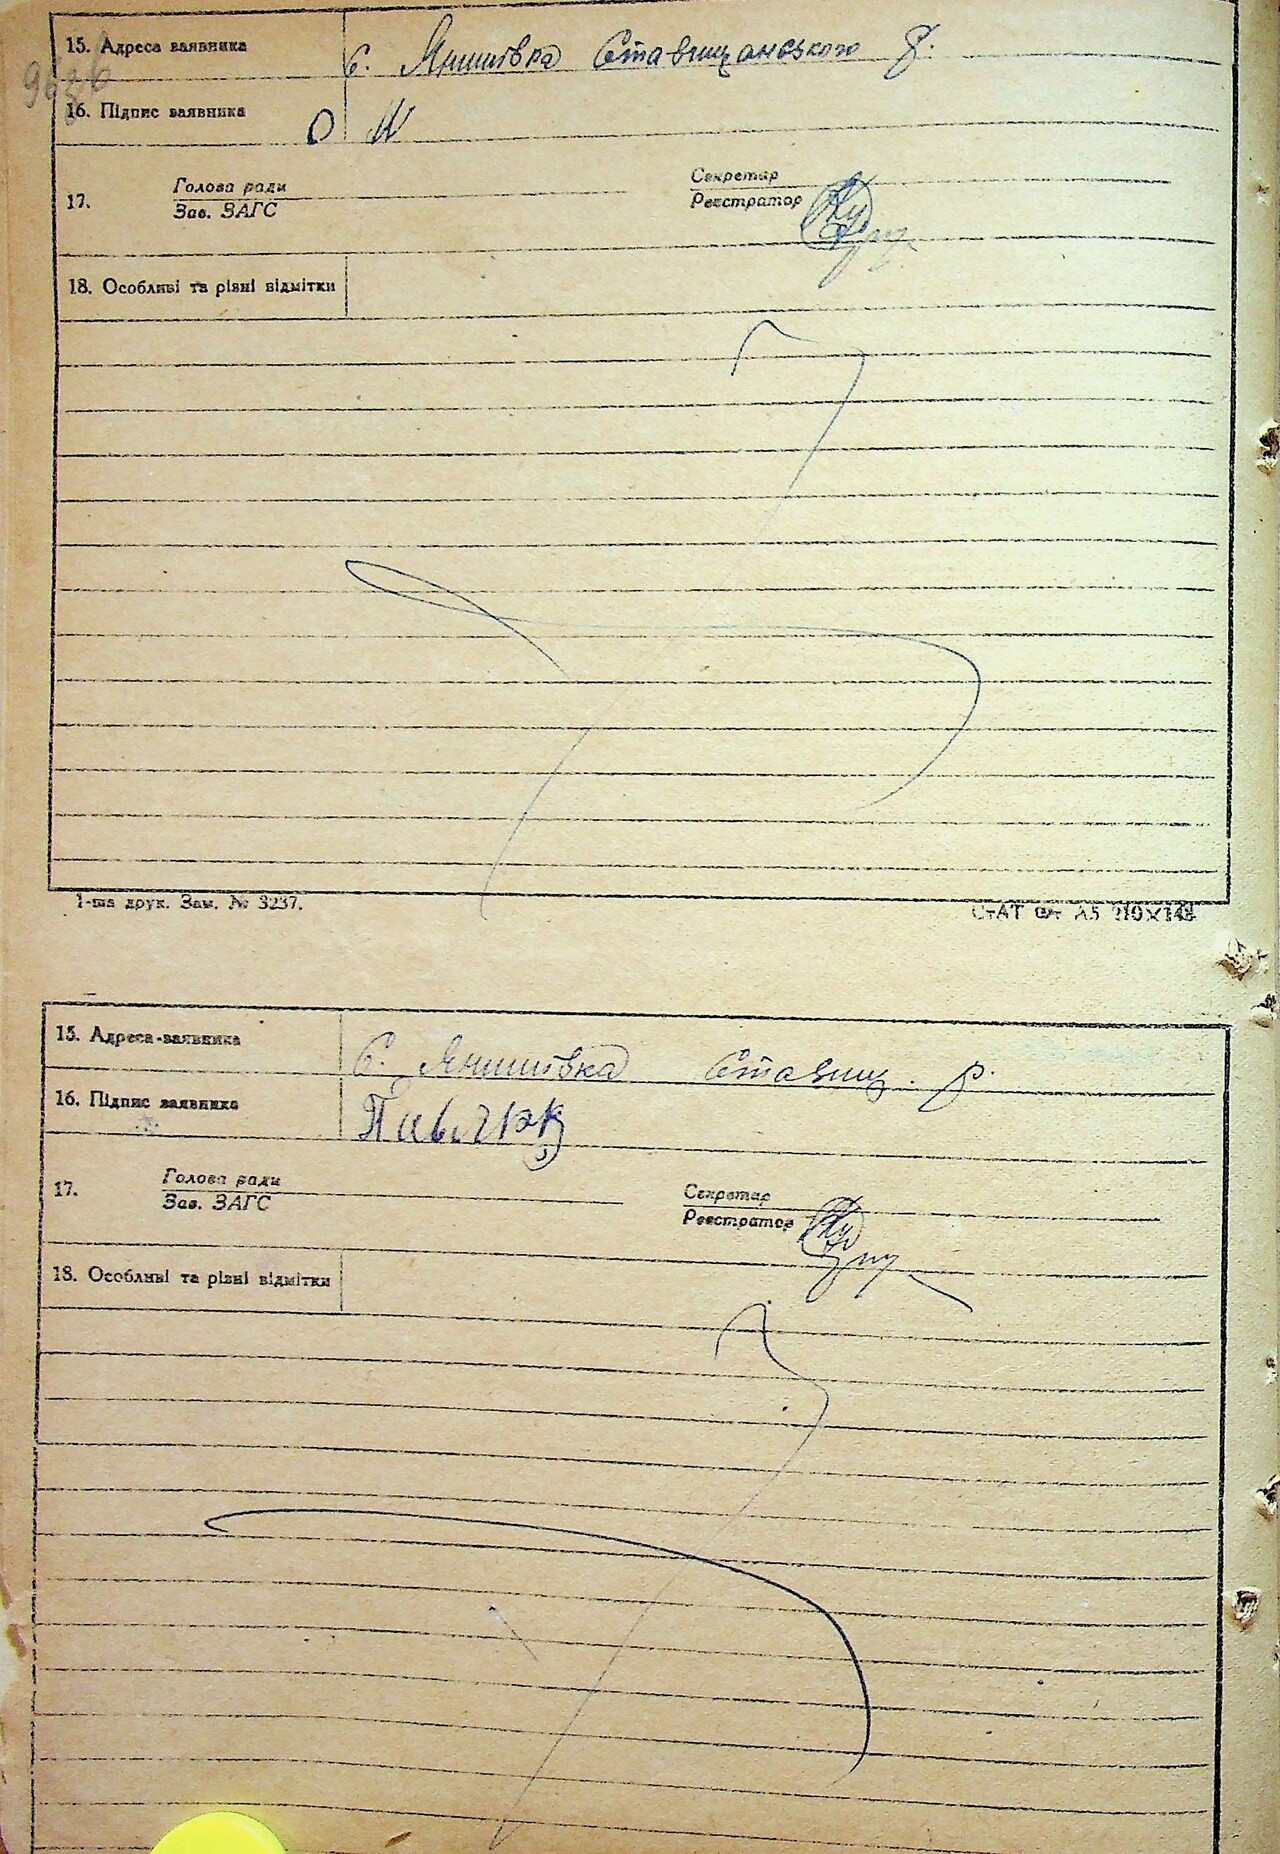 15. Адреса заявника с. Янишівка Ставищанського р.
16. Підпис заявника
17. Голова ради Секретар
Зав. ЗАГС Реєстратор
18. Особливі та різні відмітки
1-ша друк. Зам. № 3237. СтАТ ф/т А5 210×148
15. Адреса заявника с. Янишівка Ставищ. р.
16. Підпис заявника
17. Голова ради Секретар
Зав. ЗАГС Реєстратор
18. Особливі та різні відмітки